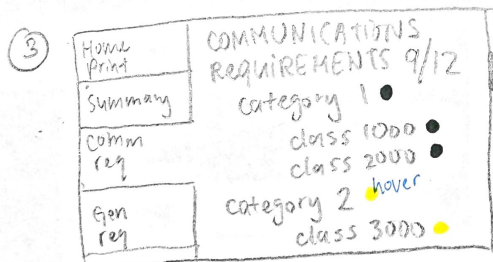 3
Home
Print
Summary
Comm
req
Gen
req
COMMUNICATIONS
REQUIREMENTS 9/12
category 1
class 1000
class 2000
category 2 hover
class 3000